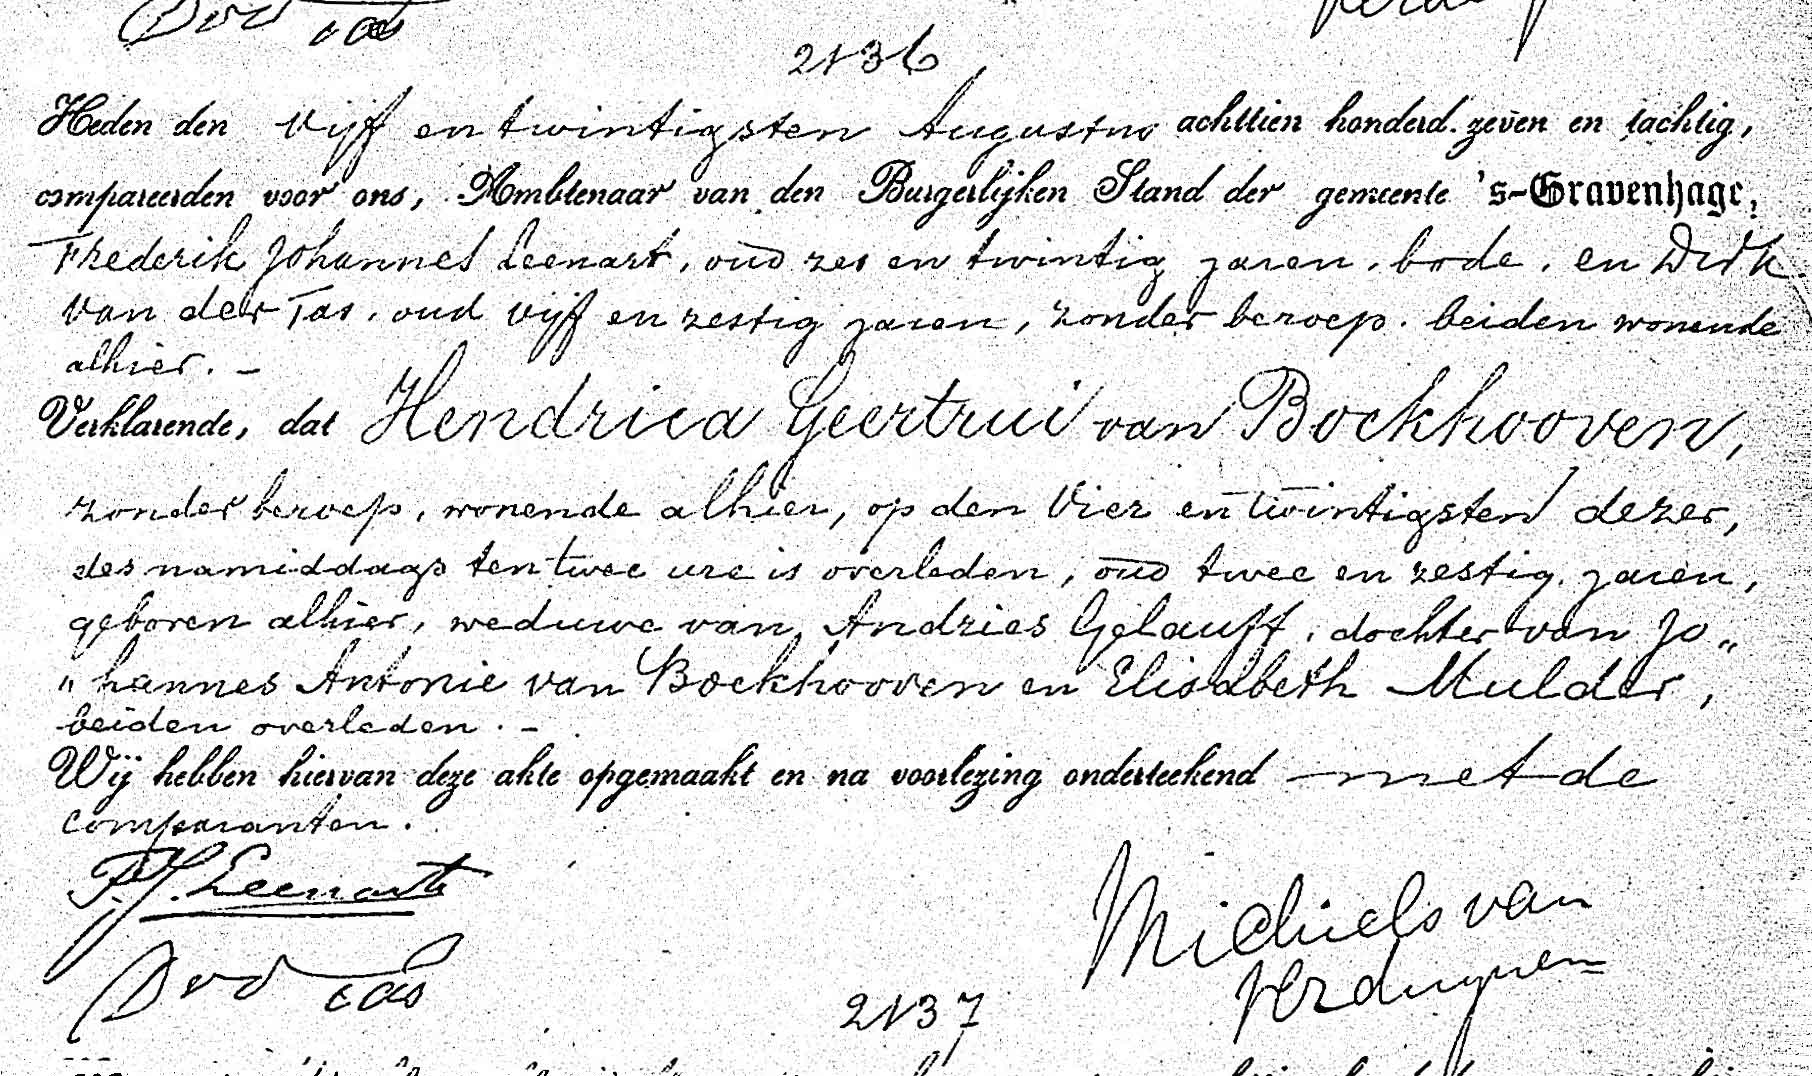 2136
Heden den vijf en twintigsten Augustus achttien honderd zeven en tachtig,
compareerden voor ons, Ambtenaar van den Burgerlijken Stand der gemeente 's-Gravenhage,
Frederik Johannes Leenart, oud zes en twintig jaren, bode, en Dirk
van der Tas, oud vijf en zestig jaren, zonder beroep, beiden wonende
alhier. –
Verklarende, dat Hendrica Geertrui van Bockhooven,
zonder beroep, wonende alhier, op den Vier en twintigsten dezer,
des namiddags ten twee ure is overleden, oud twee en zestig jaren,
geboren alhier, weduwe van Andries Gelauff, dochter van Jo„
„hannes Antonie van Bockhooven en Elisabeth Mulder,
beiden overleden. –
Wij hebben hiervan deze akte opgemaakt en na voorlezing onderteekend – met de
comparanten.
F. J. Leenart
Michiels van
Verduynen
2137